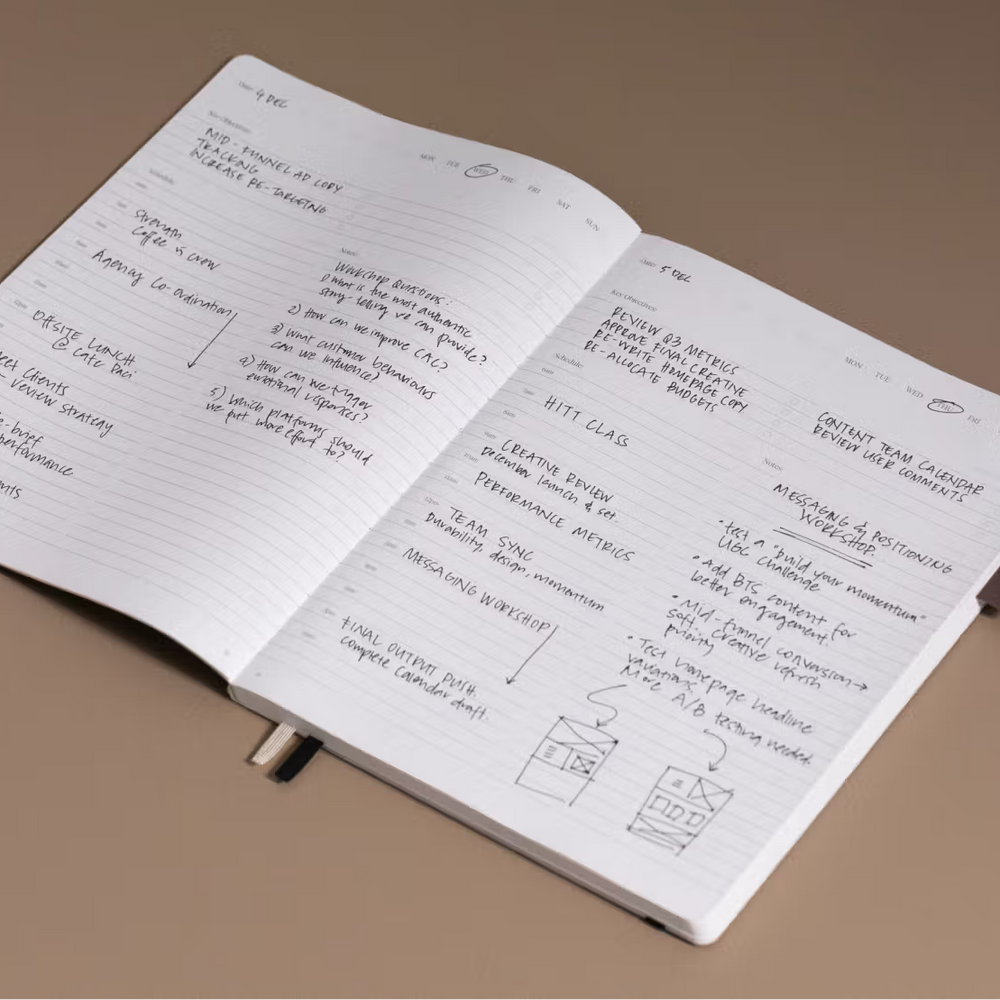 Date: 4 DEC
MON TUE WED THU FRI SAT SUN
Key Objectives:
MID-FUNNEL AD COPY
TRACKING
INCREASE RE-TARGETING
Schedule:
Strength
Coffee w crew
Agency Co-ordination
OFFSITE LUNCH
@ Cafe Paci
Clients
review strategy
-brief
performance
Notes:
Workshop Questions:
1) What is the most authentic
story-telling we can provide?
2) How can we improve CAC?
3) What customer behaviours
can we influence?
4) How can we trigger
emotional responses?
5) Which platforms should
we put more effort to?
Date: 5 DEC
MON TUE WED THU FRI
Key Objectives:
REVIEW Q3 METRICS
APPROVE FINAL CREATIVE
RE-WRITE HOMEPAGE COPY
RE-ALLOCATE BUDGETS
CONTENT TEAM CALENDAR
REVIEW USER COMMENTS
Schedule:
HITT CLASS
CREATIVE REVIEW
December launch & set.
PERFORMANCE METRICS
12pm
TEAM SYNC
Durability, design, momentum
MESSAGING WORKSHOP
FINAL OUTPUT PUSH.
Complete Calendar draft.
Notes:
MESSAGING & POSITIONING
WORKSHOP.
• Test a "build your momentum"
UGC challenge
• Add BTS content for
better engagement.
• Mid-funnel conversion →
soft. Creative refresh
priority
• Test homepage headline
variations
More A/B testing needed.